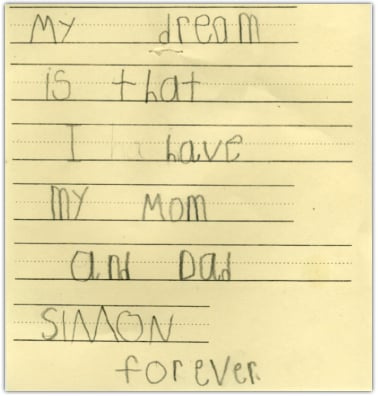 My dream
is that
I have
My Mom
and Dad
SIMON
forever.